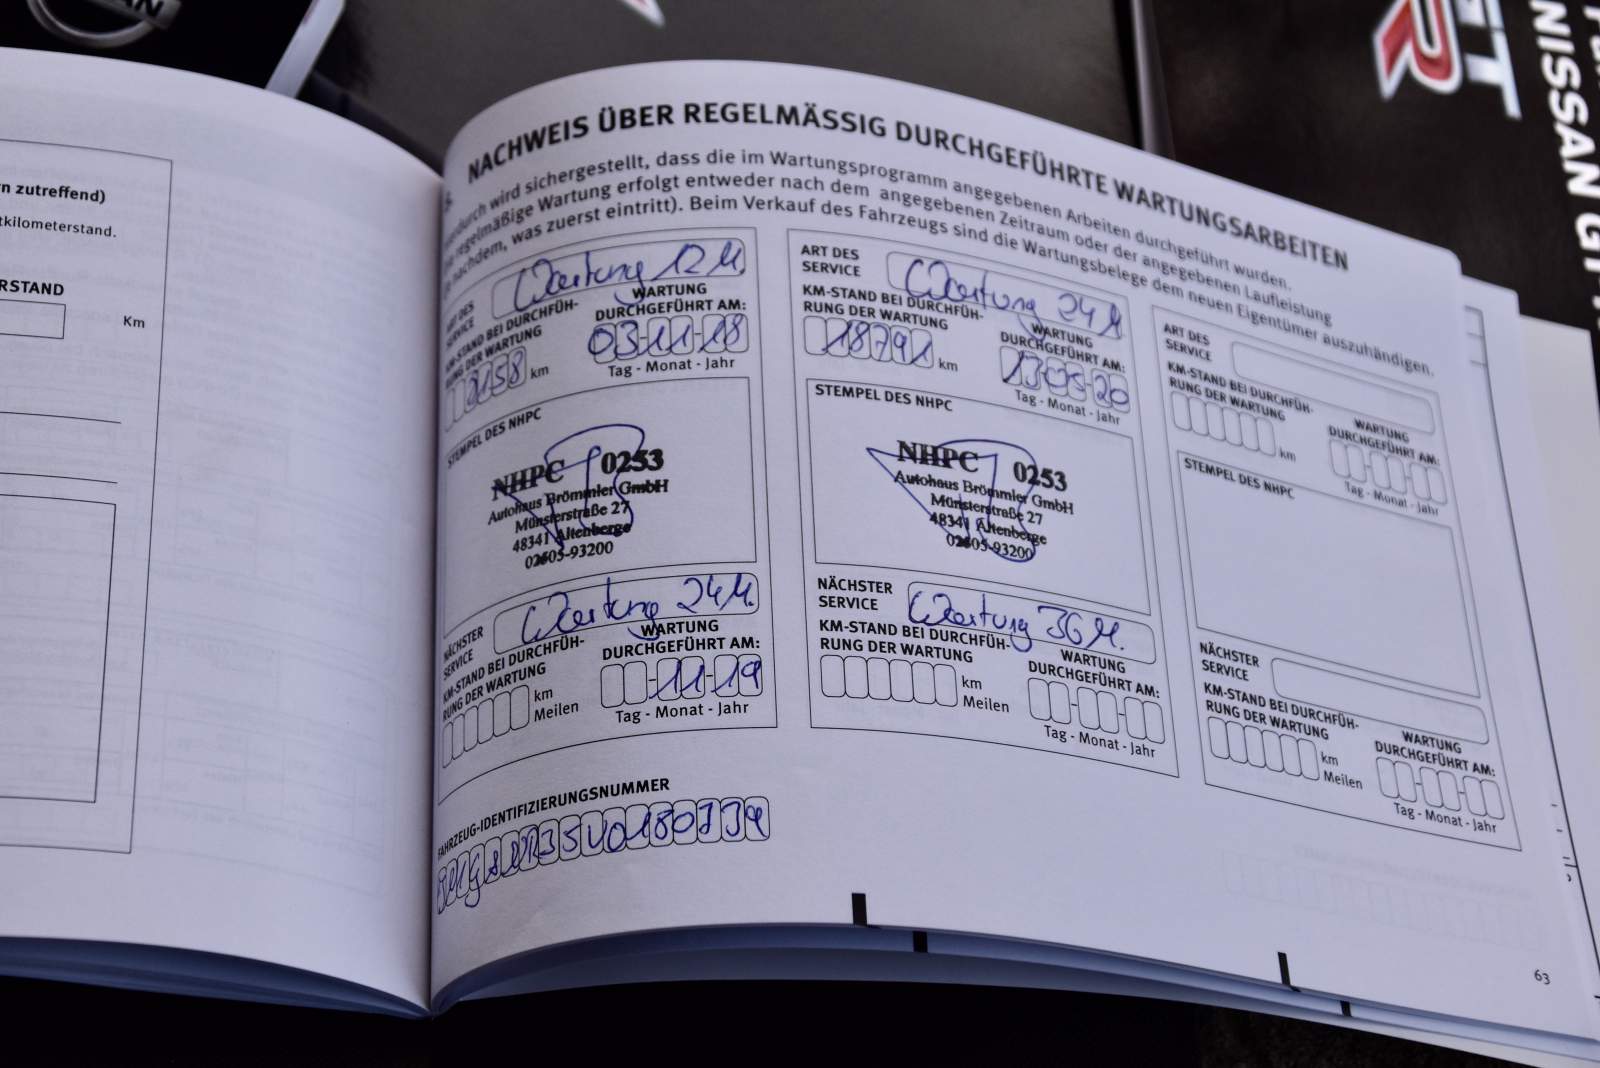 NISSAN GT
n zutreffend)
tkilometerstand.
RSTAND
Km
NACHWEIS ÜBER REGELMÄSSIG DURCHGEFÜHRTE WARTUNGSARBEITEN
wird sichergestellt, dass die im Wartungsprogramm angegebenen Arbeiten durchgeführt wurden.
regelmäßige Wartung erfolgt entweder nach dem angegebenen Zeitraum oder der angegebenen Laufleistung
nachdem, was zuerst eintritt). Beim Verkauf des Fahrzeugs sind die Wartungsbelege dem neuen Eigentümer auszuhändigen.
ART DES
SERVICE
Wartung 12 M.
KM-STAND BEI DURCHFÜH-
RUNG DER WARTUNG
km
WARTUNG
DURCHGEFÜHRT AM:
03-11-18
Tag - Monat - Jahr
STEMPEL DES NHPC
NHPC 0253
Autohaus Brömmler GmbH
Münsterstraße 27
48341 Altenberge
02505-93200
NÄCHSTER
SERVICE
Wartung 24 M.
KM-STAND BEI DURCHFÜH-
RUNG DER WARTUNG
km
Meilen
WARTUNG
DURCHGEFÜHRT AM:
-11-19
Tag - Monat - Jahr
FAHRZEUG-IDENTIFIZIERUNGSNUMMER
ART DES
SERVICE
Wartung 24 M
KM-STAND BEI DURCHFÜH-
RUNG DER WARTUNG
18791 km
WARTUNG
DURCHGEFÜHRT AM:
13-05-20
Tag - Monat - Jahr
STEMPEL DES NHPC
NHPC 0253
Autohaus Brömmler GmbH
Münsterstraße 27
48341 Altenberge
02505-93200
NÄCHSTER
SERVICE
Wartung 36 M.
KM-STAND BEI DURCHFÜH-
RUNG DER WARTUNG
km
Meilen
WARTUNG
DURCHGEFÜHRT AM:
Tag - Monat - Jahr
ART DES
SERVICE
KM-STAND BEI DURCHFÜH-
RUNG DER WARTUNG
km
WARTUNG
DURCHGEFÜHRT AM:
Tag - Monat - Jahr
STEMPEL DES NHPC
NÄCHSTER
SERVICE
KM-STAND BEI DURCHFÜH-
RUNG DER WARTUNG
km
Meilen
WARTUNG
DURCHGEFÜHRT AM:
Tag - Monat - Jahr
63